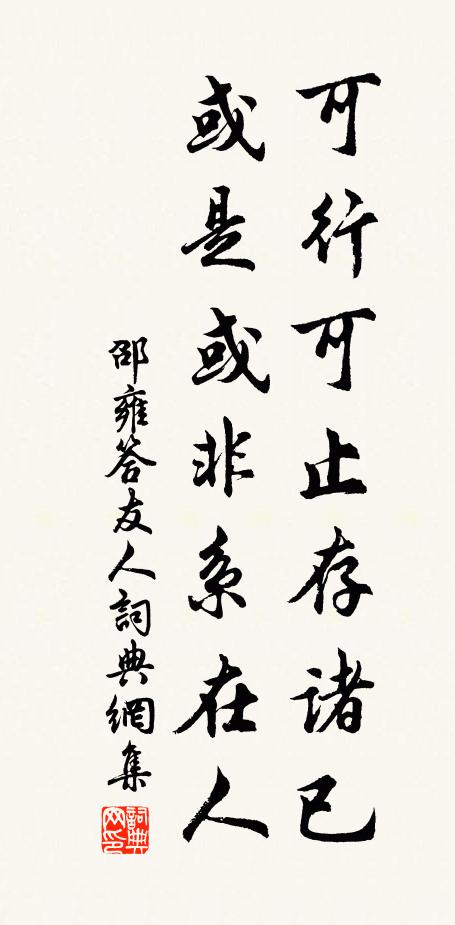 可行可止存諸已
或是或非系在人
邵雍答友人詞典網集
詞典
网印